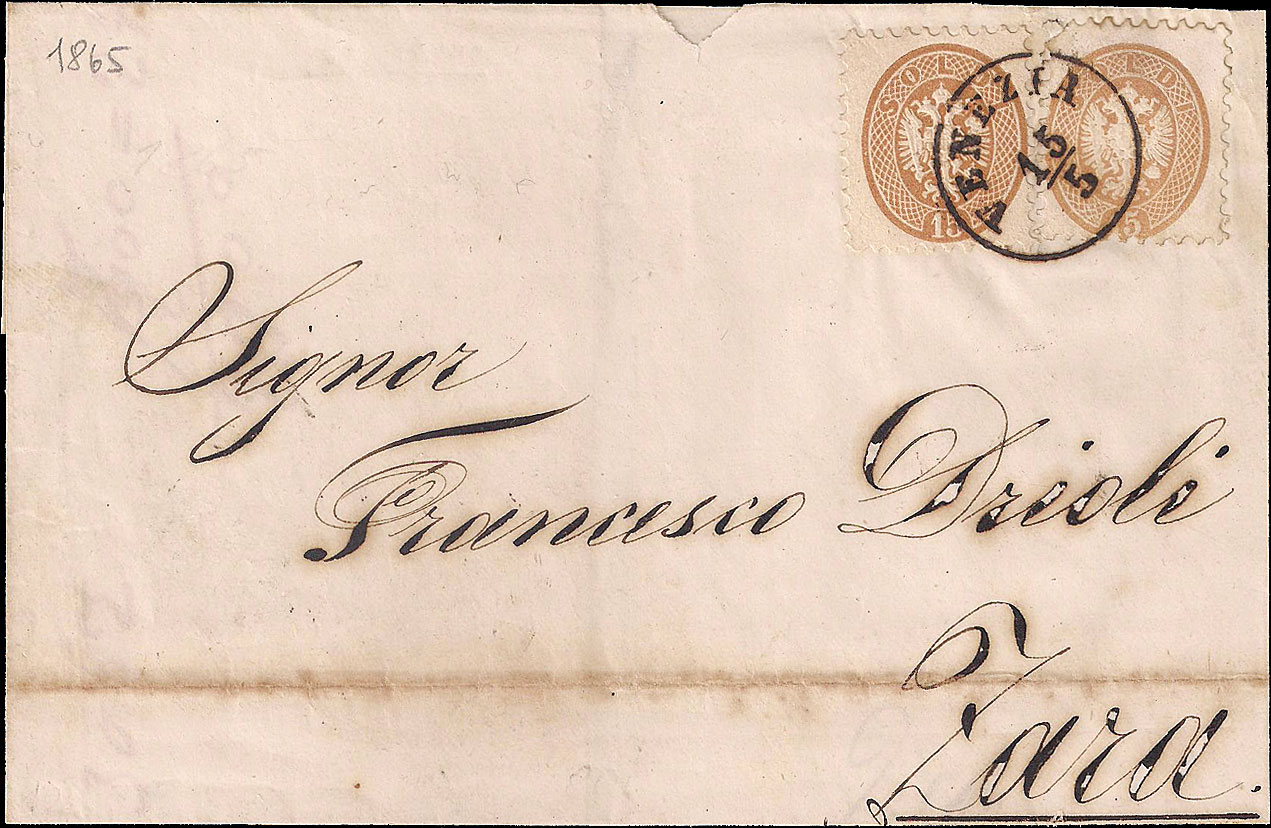 1865
SOLDI
15
SOLDI
15
VENEZIA
15/5
Signor
Francesco Drioli
Zara.